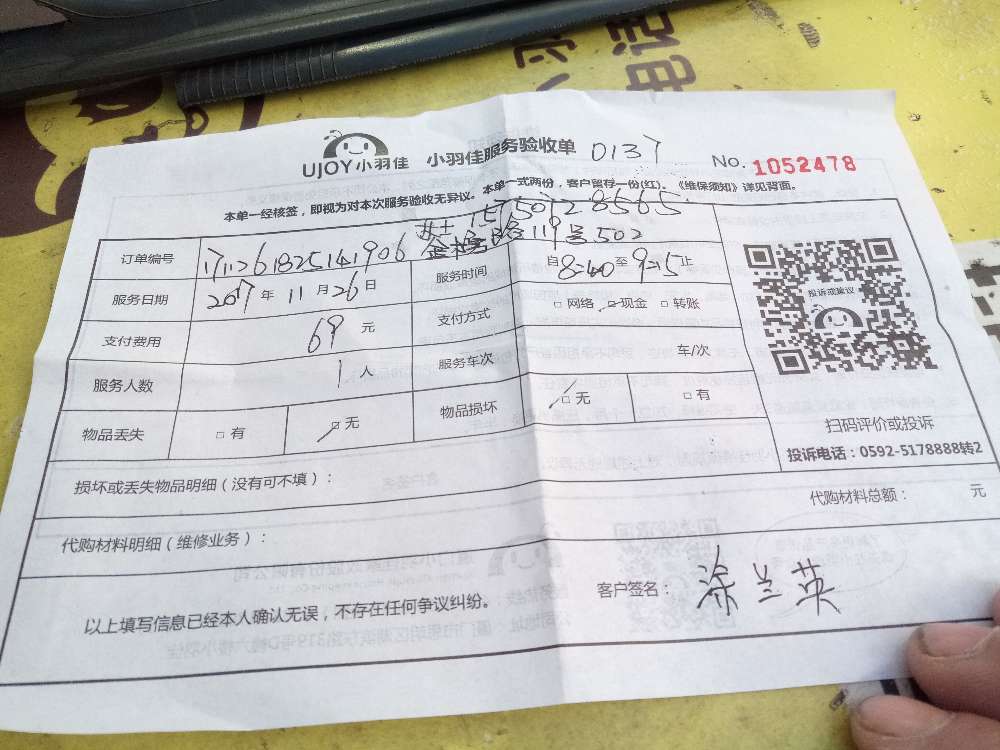 UJOY小羽佳 小羽佳服务验收单 0137 No. 1052478
本单一经核签，即视为对本次服务验收无异议。本单一式两份，客户留存一份(红)。《维保须知》详见背面。
女士 15750728565
119号502
订单编号 1711261825141906 服务时间 自8:40至9:15止
服务日期 2017年11月26日 支付方式 □网络 ☑现金 □转账
支付费用 69元
服务人数 1人 服务车次 车/次
物品丢失 □有 ☑无 物品损坏 ☑无 □有
投诉或建议
扫码评价或投诉
投诉电话：0592-5178888转2
损坏或丢失物品明细（没有可不填）：
代购材料明细（维修业务）： 代购材料总额： 元
以上填写信息已经本人确认无误，不存在任何争议纠纷。 客户签名：涂兰英